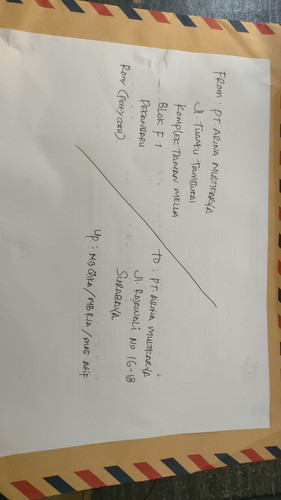 FROM : PT. ARINA MULTIKARYA
Jl. TUANKU TAMBUSAI
KOMPLEK TAMAN MELLA
BLOK F 1
PEKANBARU
RONY (PETTY CASH)
TO : PT. ARINA MULTIKARYA
Jl. RAJAWALI NO 16-18
SURABAYA
UP : MB GIKA / MB RIA / MAS ARIF